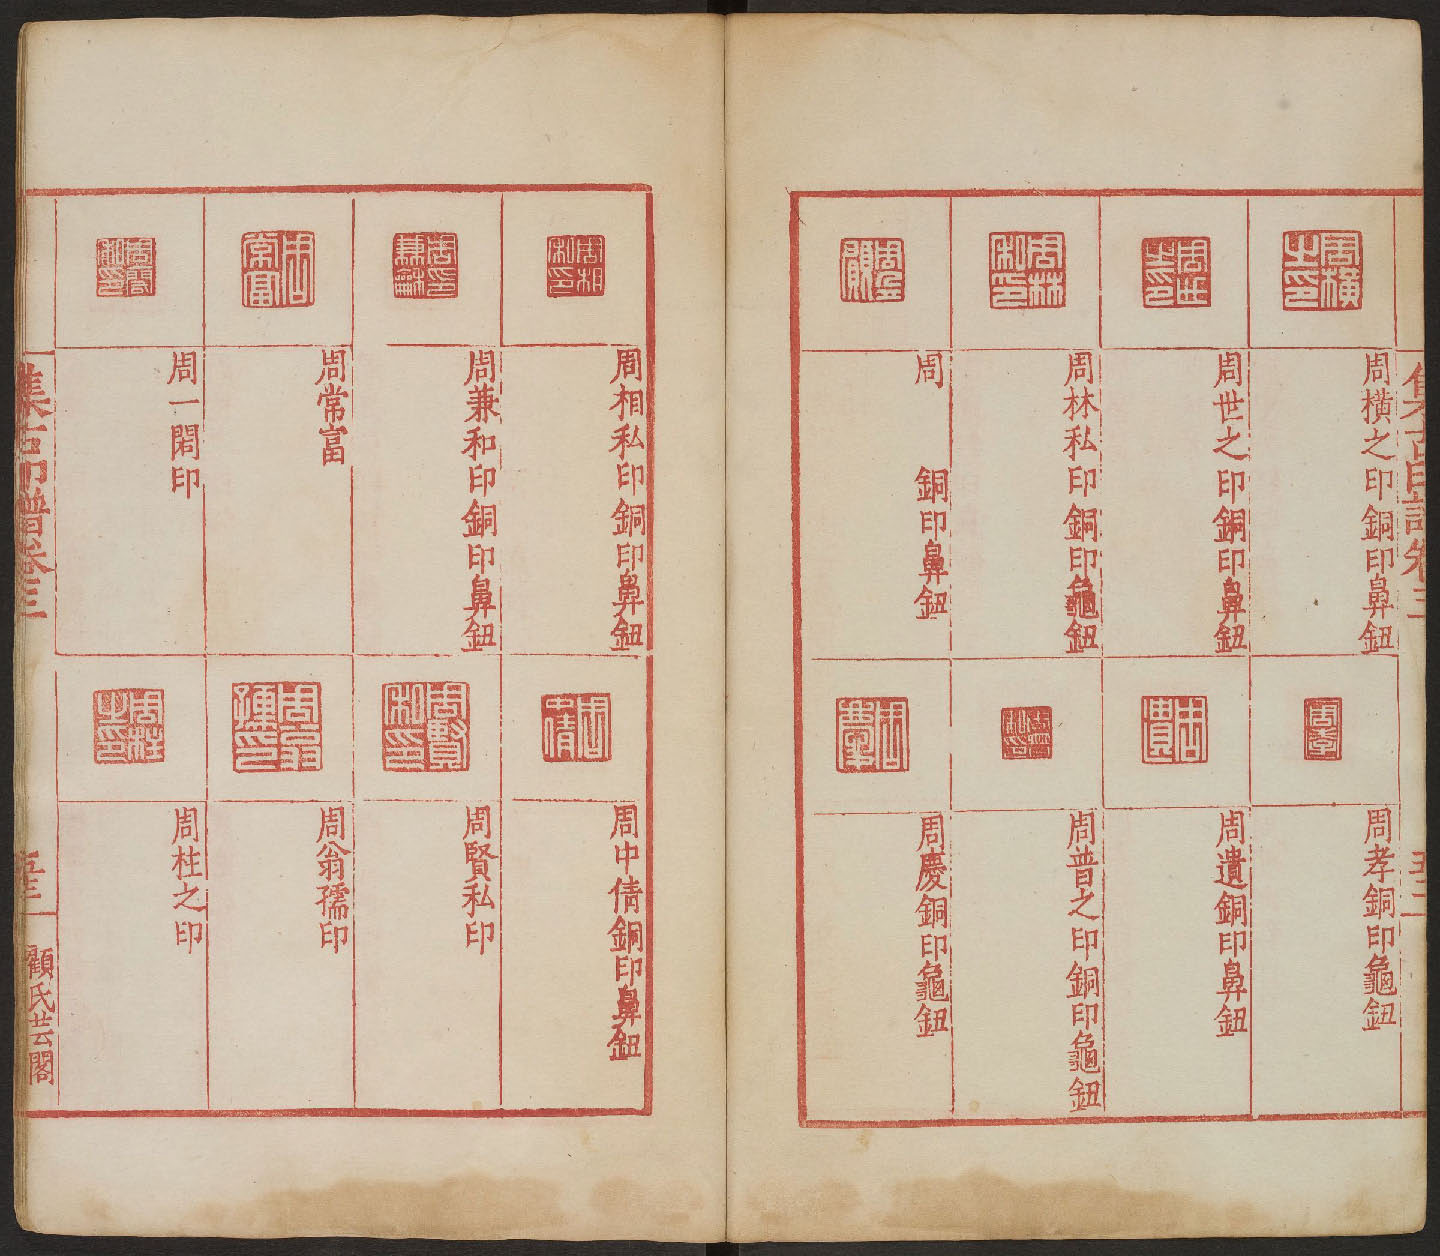 集古印譜卷三
五二
周橫之印銅印鼻鈕
周世之印銅印鼻鈕
周林私印銅印龜鈕
周 銅印鼻鈕
周孝銅印龜鈕
周遺銅印鼻鈕
周普之印銅印龜鈕
周慶銅印龜鈕
周相私印銅印鼻鈕
周兼和印銅印鼻鈕
周常富
周一閑印
周中倩銅印鼻鈕
周賢私印
周翁孺印
周柱之印
集古印譜卷三
顧氏芸閣